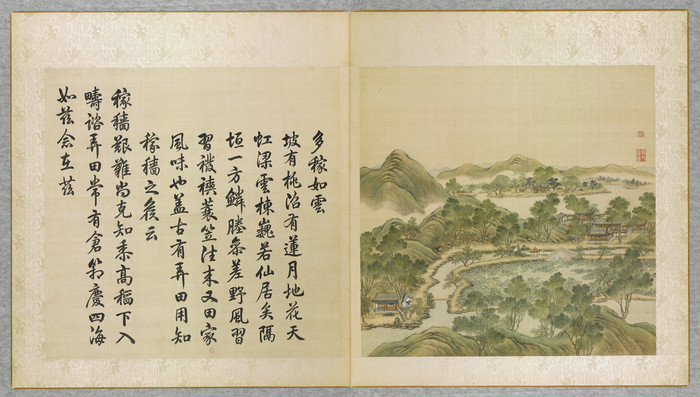 多稼如雲
坡有桃沼有蓮月地花天
虹梁雲棟巍若仙居矣隔
垣一方鱗塍參差野風習
習襏襫蓑笠往來又田家
風味也蓋古有弄田用知
稼穡之候云
稼穡艱難尚克知黍高稻下入
疇諮弄田常有倉箱慶四海
如茲念在茲